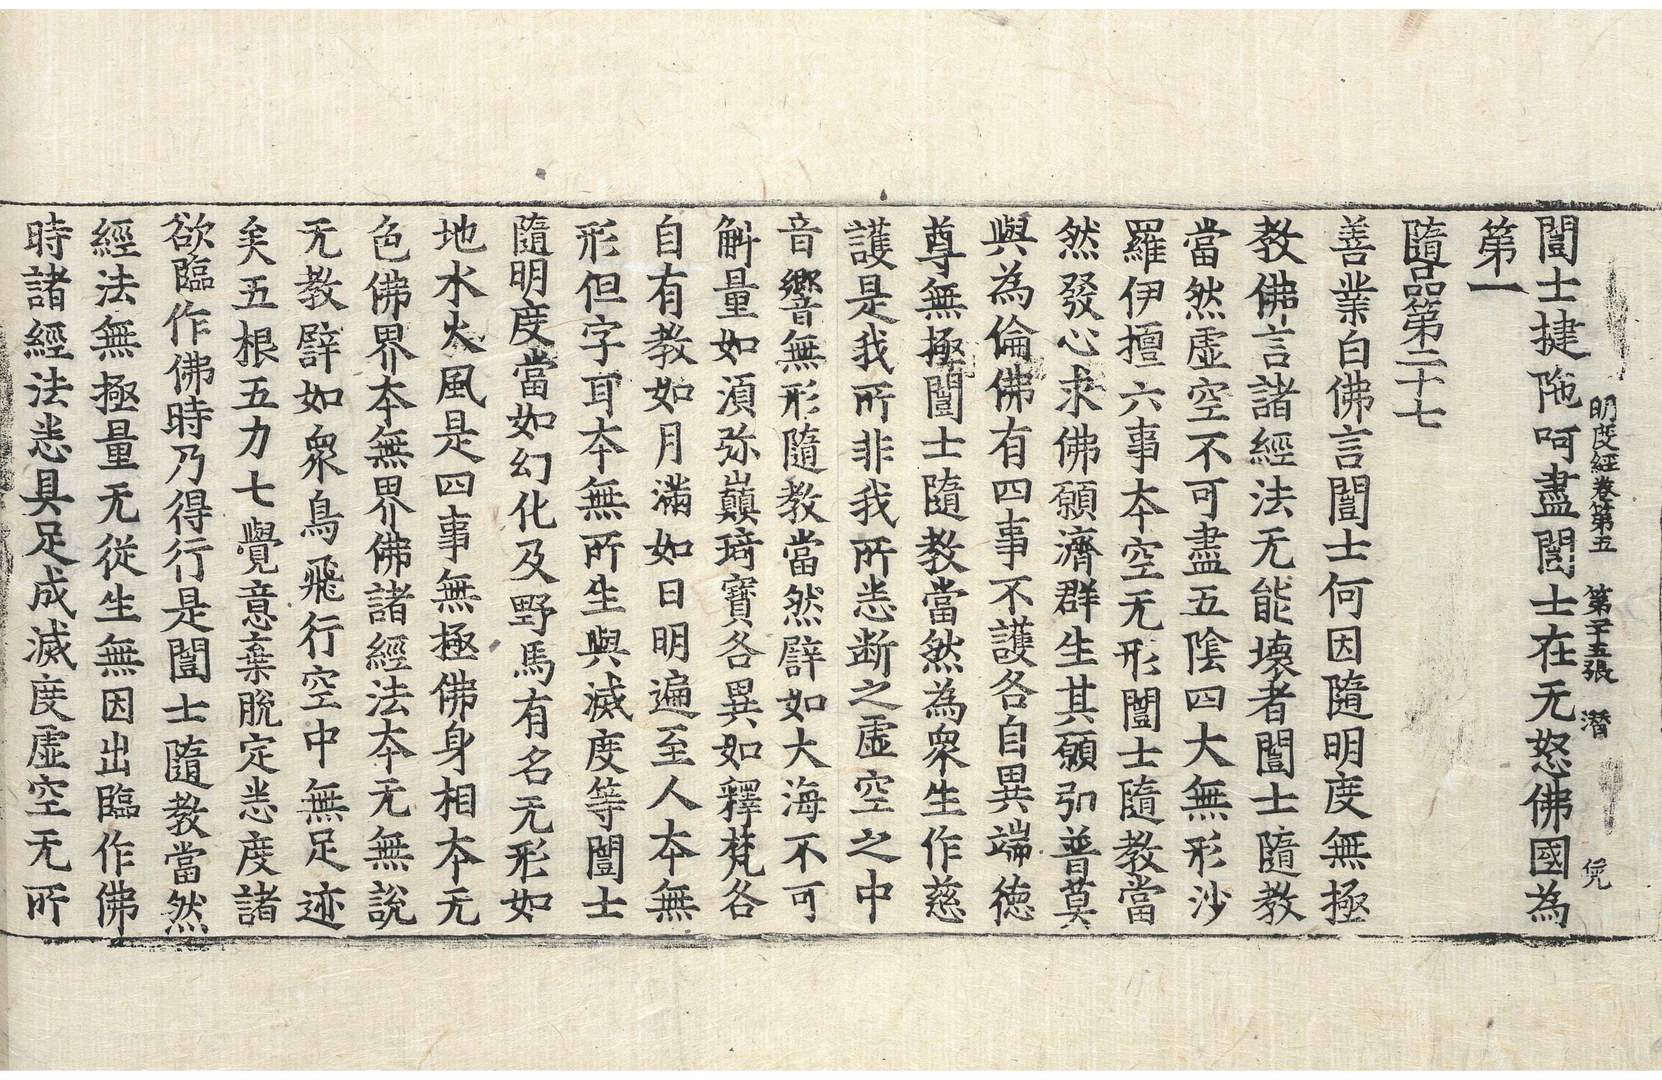 明度經卷第五　第十五張　潛　俒
闓士揵陁呵盡闓士在无怒佛國為
第一
隨品第二十七
善業白佛言闓士何因隨明度無極
教佛言諸經法无能壞者闓士隨教
當然虛空不可盡五陰四大無形沙
羅伊檀六事本空无形闓士隨教當
然發心求佛願濟群生其願弘普莫
與為倫佛有四事不護各自異端德
尊無極闓士隨教當然為眾生作慈
護是我所非我所悉断之虛空之中
音響無形隨教當然譬如大海不可
斛量如湏弥巔琦寶各異如釋梵各
自有教如月滿如日明遍至人本無
形但字耳本無所生與滅度等闓士
隨明度當如幻化及野馬有名无形如
地水火風是四事無極佛身相本无
色佛界本無界佛諸經法本无無說
无教譬如眾鳥飛行空中無足迹
矣五根五力七覺意棄脫定悉度諸
欲臨作佛時乃得行是闓士隨教當然
經法無極量无從生無因出臨作佛
時諸經法悉具足成滅度虛空无所